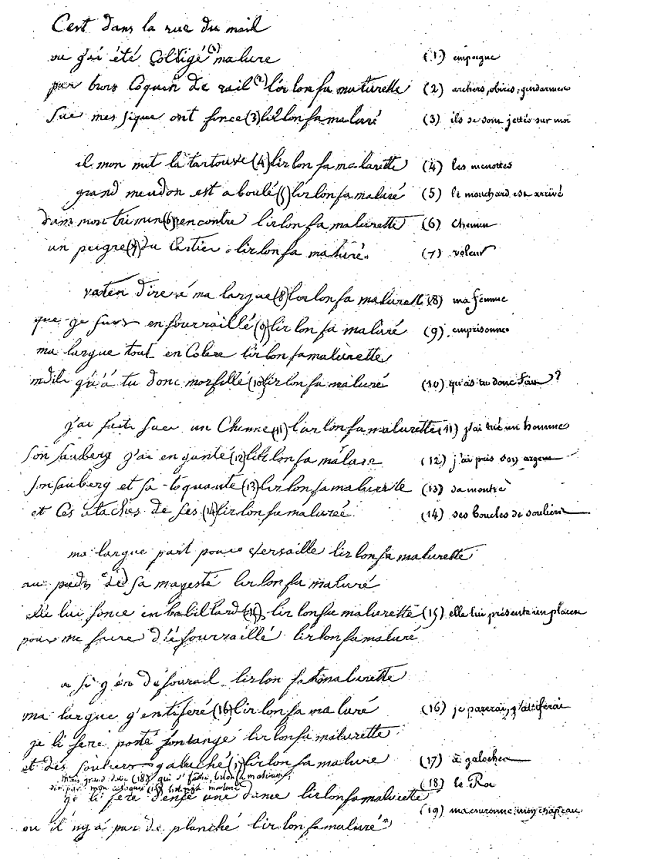 C'est dans la rue du mail
ou j'ai été Coltigé (1) malure (1) empoigne
par trois Coquin de rail (2) lirlonfa malurette (2) archers, sbires, gendarmes
Sur mes sique ont fonce (3) lirlonfa maluré (3) ils se sont jettés sur moi
il mon mit la tartouve (4) lirlonfa malurette (4) les menottes
grand meudon est aboulé () lirlonfa maluré (5) le mouchard est arrivé
dans mon trimin (6) rencontre lirlonfa malurette (6) Chemin
un peigre (7) du Cartier lirlonfa maluré. (7) voleur
vaten dire à ma largue (8) lorlonfa malurett (8) ma femme
que je suis enfourraillé (9) lirlonfa maluré (9) emprisonne
ma largue tout en Colere lirlonfamalurette
mdit qu'à tu donc morfillé (10) lirlonfa maluré (10) qu'as tu donc fait?
j'ai fait suer un Chenne (11) lirlonfamalurette (11) j'ai tué un homme
son auberg j'ai enganté (12) lirlonfa malure (12) j'ai pris son argent
son auberg et sa toquante (13) lirlonfamalurette (13) sa montre
et ces ataches de ses (14) lirlonfamaluré (14) ses boucles de souliers
ma largue part pour Versaille lirlonfa malurette
au pieds de sa magesté lirlonfa maluré
elle lui fonce en babillard lirlonfa malurette (15) elle lui présente un placet
pour me faire défourraillé lirlonfamaluré
a si j'en défourail lirlonfa malurette
ma largue j'entiferé (16) lirlonfa maluré (16) je parerai, j'attiferai
je li feré porté fontange lirlonfa malurette
et des souliers galuché () lirlonfa malure (17) à galoches
Mais grand dabe (18) qui s'fache, lirlonfa malurette (18) le Roi
dit par mon caloquet (19) lirlonfa maluré (19) ma couronne, mon chapeau
je li feré dansé une danse lirlonfamalurette
ou il n'y a pas de planché lirlonfa maluré